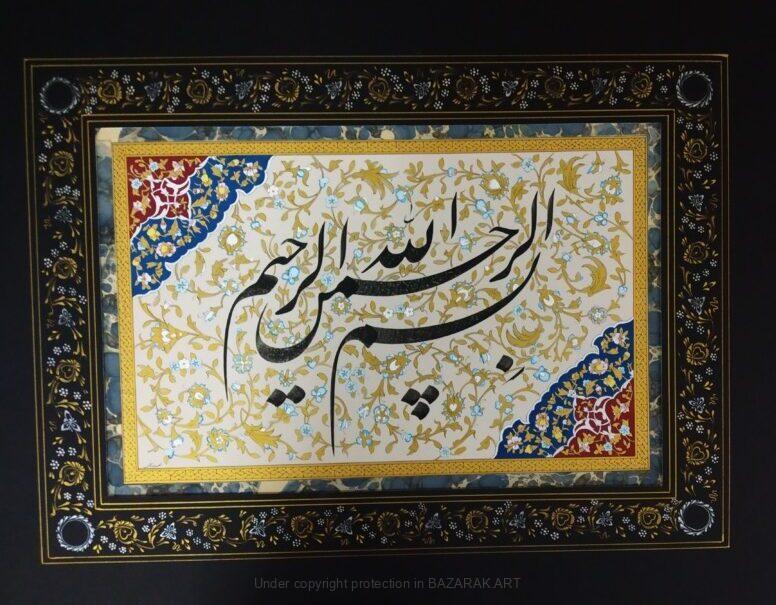 بسم الله الرحمن الرحیم
Under copyright protection in BAZARAK.ART